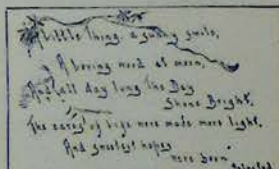 A little Thing, a sunny smile,
A loving word at morn,
And all day long The Day
Shone Bright,
The cares of life were made more light,
And sweetest hopes
were born
Selected